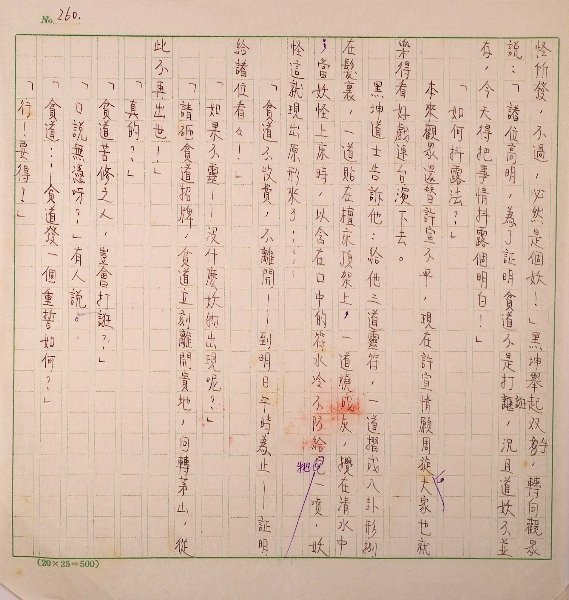 No. 260.
怪所發，不過，必然是個妖！」黑坤舉起双手，轉向觀眾
說：「諸位高明，為了証明貧道不是打誑，況且道妖不並
存，今天得把事情抖露個明白！」
「如何抖露法？！」
本來觀眾還替許宣不平，現在許宣情願周旋，大家也就
樂得看好戲連台演下去。
黑坤道士告訴他：給他三道靈符，一道摺成八卦形擱
在髮裏，一道貼在檀床頂架上，一道燒成灰，攪在清水中
；當妖怪上床時，以含在口中的符水冷不防給她一噴，妖
怪這就現出原形來了……
貧道不收費，不離開——到明日午時為止——証明
給諸位看看！」
「如果不靈——沒什麼妖物出現呢？」
「請砸貧道招牌，貧道立刻離開貴地，回轉茅山，從
此不再出世！」
「真的？？」
「貧道苦修之人，豈會打誑？！」
「口說無憑呀？！」有人說。
「貧道……！貧道發一個重誓如何？！」
「行！要得？！」
(20×25=500)